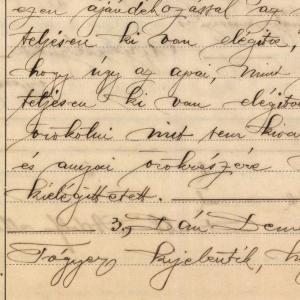 ezen ajándékozással az
teljesen ki van elégítve,
hogy úgy az apai, mint
teljesen ki van elégítve
örökölni mit sem kiván
és anyai örökrészére
kielégíttetett.
3., Dán Deme
Tógyer kijelentik, h